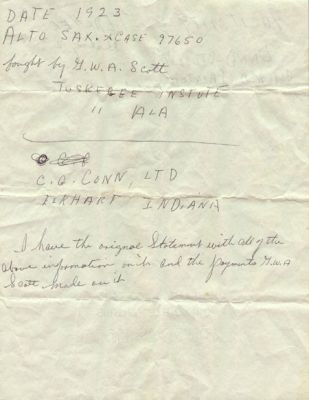 DATE 1923
ALTO SAX. & CASE 97650
bought by G.W.A. Scott
TUSKEGEE INSTUTE
" ALA
C.G. CONN, LTD
ELKHART INDIANA
I have the orignal Statement with all of the
above information on it and the payments G.W.A
Scott made on it